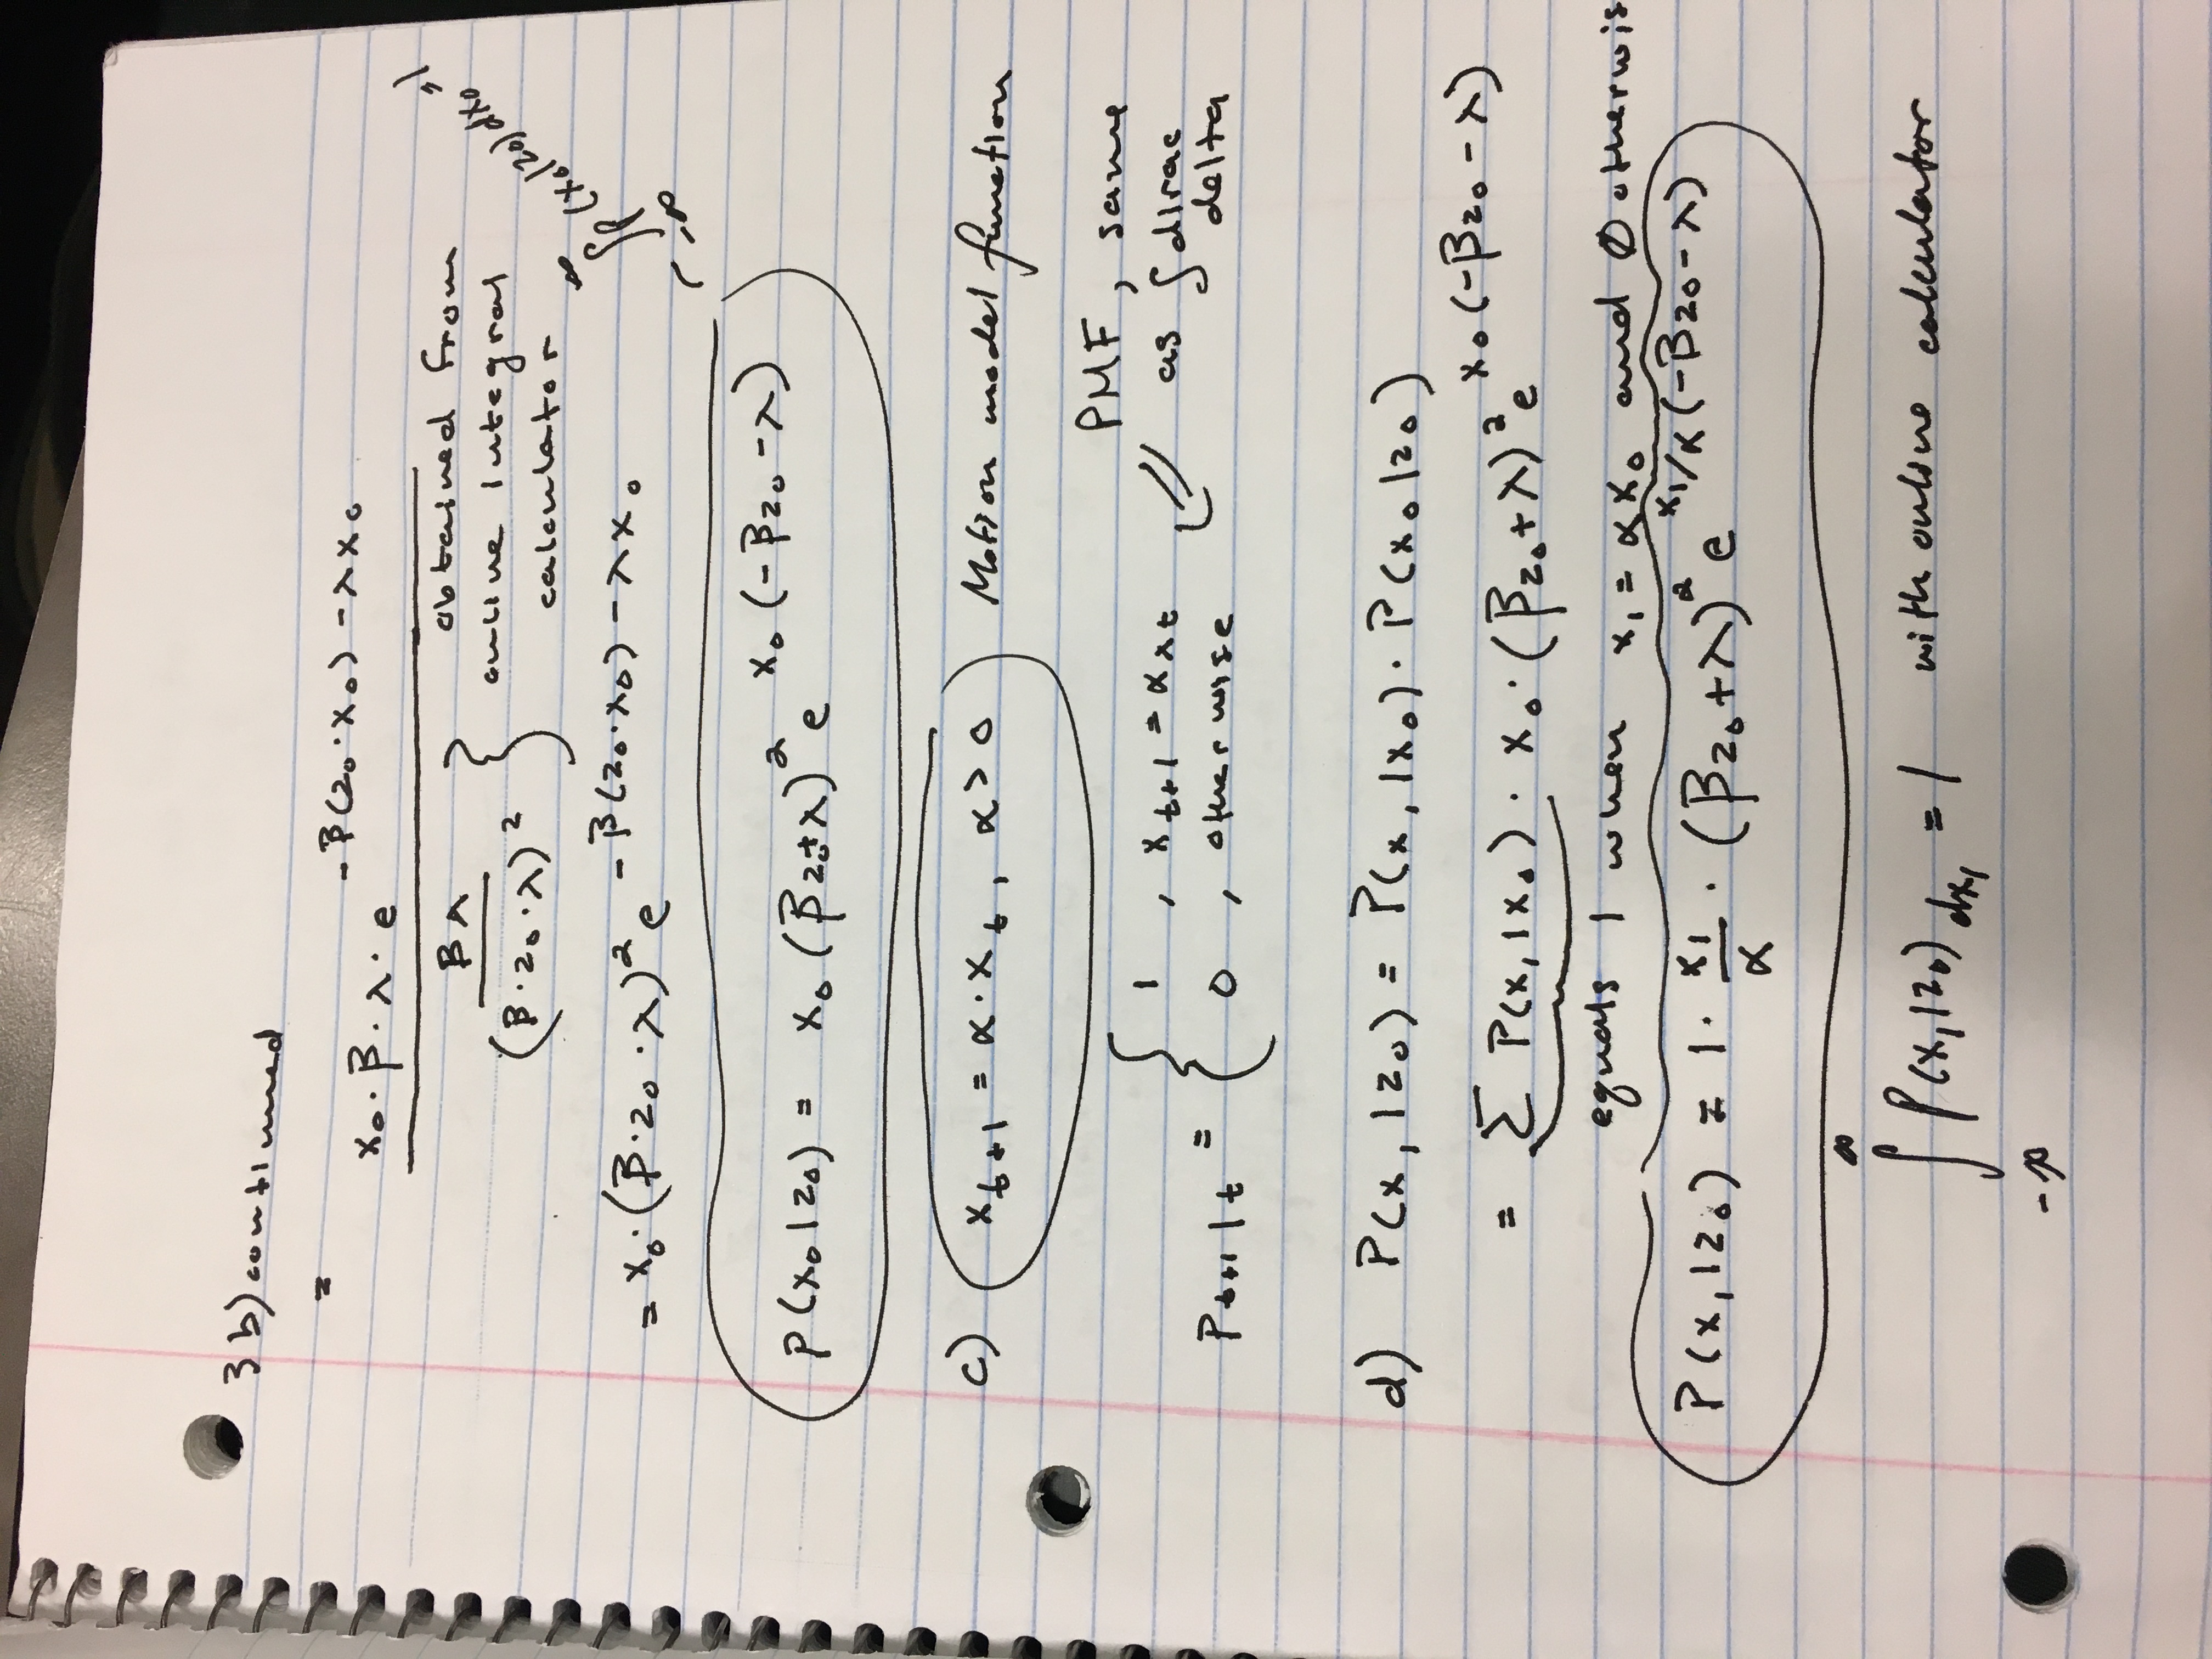 3 b) continued
=
x₀ · β · λ · e^(-β(z₀·x₀) - λx₀)
βλ
(β·z₀·λ)² } obtained from
online integral
calculator
∫_{-∞}^{∞} p(x₀|z₀)dx₀ = 1
= x₀·(β·z₀·λ)² e^(-β(z₀·x₀) - λx₀)
p(x₀|z₀) = x₀(βz₀+λ)² e^(x₀(-βz₀-λ))
c) x_{t+1} = α·x_t, α>0 Motion model function
PMF, same
as ∫ dirac
delta
P_{t+1|t} = { 1 , x_{t+1} = αx_t
0 , otherwise
d) P(x₁|z₀) = P(x₁|x₀)·P(x₀|z₀)
= Σ P(x₁|x₀) · x₀·(βz₀+λ)² e^(x₀(-βz₀-λ))
equals 1 when x₁ = αx₀ and 0 otherwis
P(x₁|z₀) = 1· x₁/α · (βz₀+λ)² e^(x₁/α(-βz₀-λ))
∫_{-∞}^{∞} P(x₁|z₀) dx₁ = 1 with online calculator